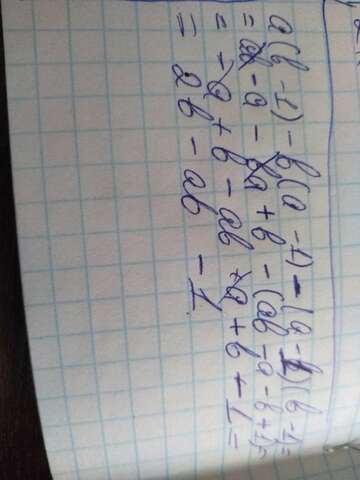 a(b-1)-b(a-1)-(a-1)(b-1)=
=ab-a-ba+b-(ab-a-b+1)=
=-a+b-ab+a+b+1=
=2b-ab-1